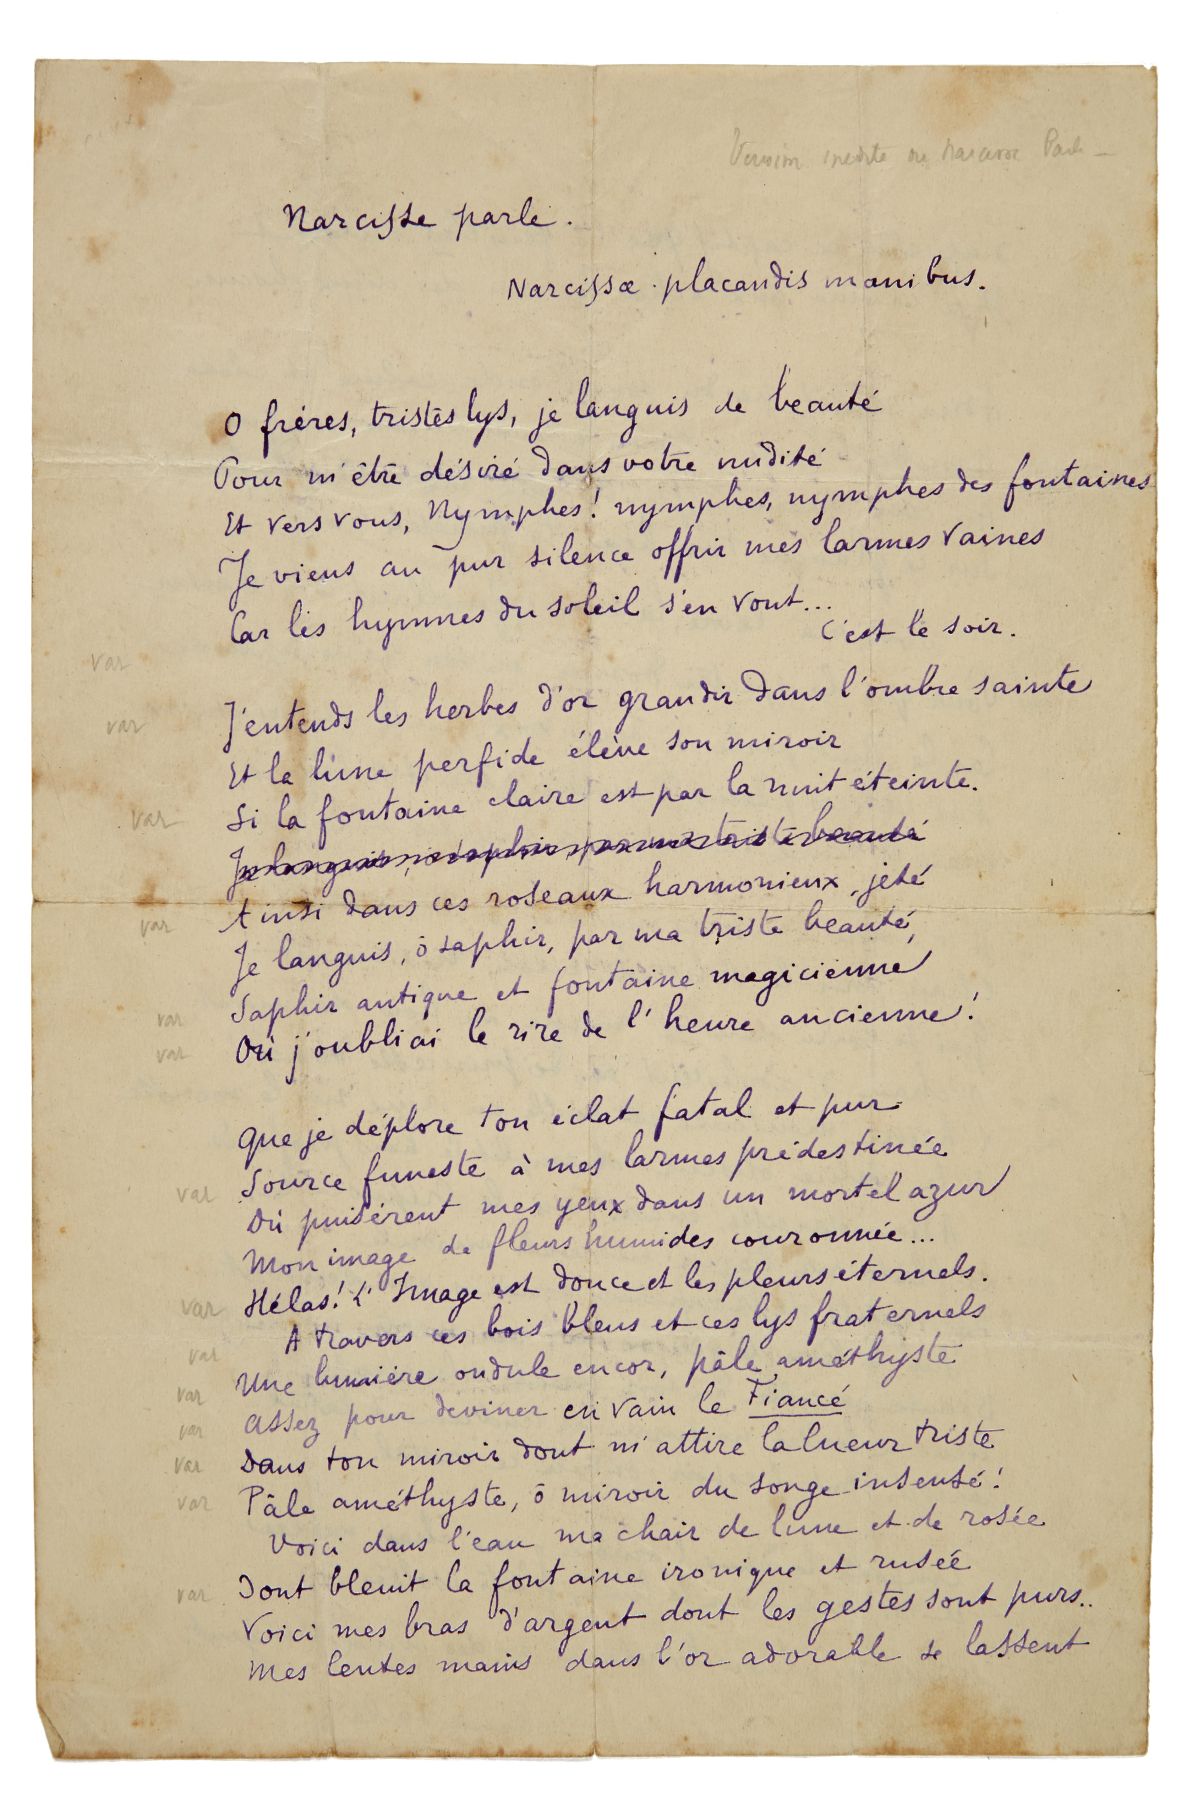 Version inédite de Narcisse Parle —
Narcisse parle.
Narcissæ placandis manibus.
O frères, tristes lys, je languis de beauté
Pour m'être désiré dans votre nudité
Et vers vous, Nymphes! nymphes, nymphes des fontaines
Je viens au pur silence offrir mes larmes vaines
Car les hymnes du soleil s'en vont...
C'est le soir.
var
J'entends les herbes d'or grandir dans l'ombre sainte
var
Et la lune perfide élève son miroir
Si la fontaine claire est par la nuit éteinte.
var
Je languis, ô saphir, par ma triste beauté
Ainsi dans ces roseaux harmonieux, jeté
var
Je languis, ô saphir, par ma triste beauté,
Saphir antique et fontaine magicienne
var
Où j'oubliai le rire de l'heure ancienne!
var
Que je déplore ton éclat fatal et pur
Source funeste à mes larmes prédestinée
var
Où puisèrent mes yeux dans un mortel azur
Mon image de fleurs humides couronnée...
Hélas! L'Image est douce et les pleurs éternels.
var
A travers ces bois bleus et ces lys fraternels
var
Une lumière ondule encor, pâle améthyste
var
Assez pour deviner en vain le Fiancé
var
Dans ton miroir dont m'attire la lueur triste
var
Pâle améthyste, ô miroir du songe insensé!
var
Voici dans l'eau ma chair de lune et de rosée
Dont bleuit la fontaine ironique et rusée
var
Voici mes bras d'argent dont les gestes sont purs..
Mes lentes mains dans l'or adorable se lassent